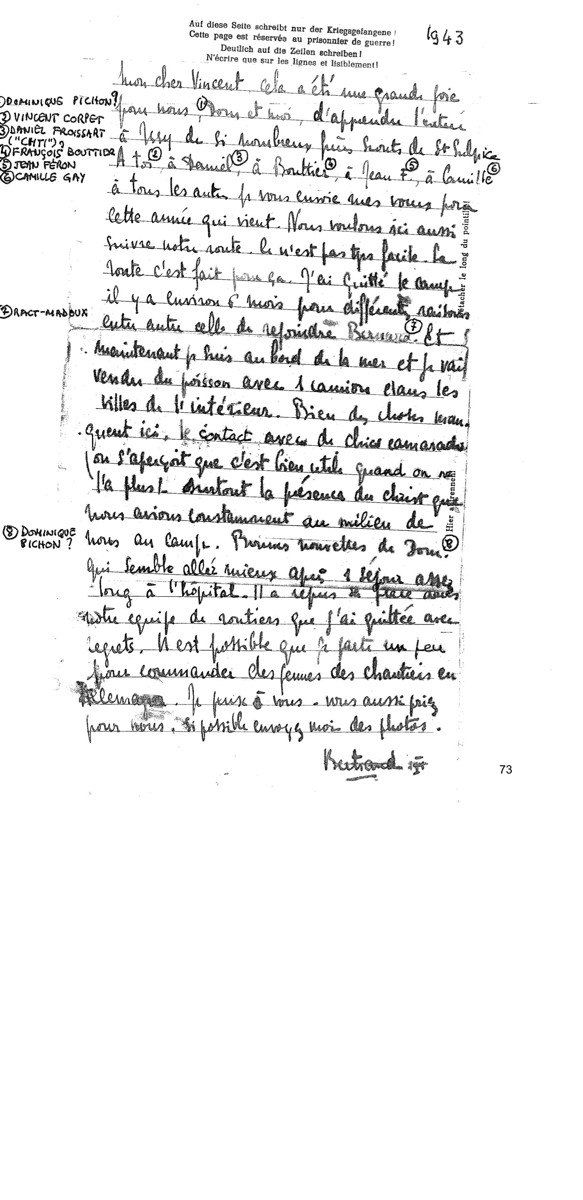 Auf diese Seite schreibt nur der Kriegsgefangene!
Cette page est réservée au prisonnier de guerre!
Deutlich auf die Zeilen schreiben!
N'écrire que sur les lignes et lisiblement!
1943
① DOMINIQUE PICHON?
② VINCENT CORPET
③ DANIEL FROISSART
("CHTI")?
④ FRANÇOIS BOUTTIER
⑤ JEAN FÉRON
⑥ CAMILLE GAY
⑦ RACT-MADOUX
⑧ DOMINIQUE
PICHON?
Mon cher Vincent, cela a été une grande joie
pour nous, ① Dom et moi, d'apprendre l'entrée
à Issy de si nombreux frères scouts de St Sulpice
A toi ②, à Daniel ③, à Bouttier ④, à Jean F. ⑤, à Camille ⑥
à tous les autres je vous envoie mes vœux pour
cette année qui vient. Nous voulons ici aussi
suivre notre route. Ce n'est pas tjs facile la
route c'est fait pour ça. J'ai quitté le camp
il y a environ 6 mois pour différentes raisons
entre autre celle de rejoindre Bernard ⑦. Et
maintenant je suis au bord de la mer et je vais
vendre du poisson avec 1 camion dans les
villes de l'intérieur. Bien des choses man-
quent ici, le contact avec de chics camarades
(on s'aperçoit que c'est bien utile quand on ne
l'a plus) surtout la présence du Christ que
nous avions constamment au milieu de
nous au camp. Bonnes nouvelles de Dom. ⑧
qui semble aller mieux après 1 séjour assez
long à l'hôpital. Il a repris sa place dans
notre équipe de routiers que j'ai quittée avec
regrets. Il est possible que je parte un peu
pour commander des jeunes des chantiers en
Allemagne. Je pense à vous. vous aussi priez
pour nous. Si possible envoyez moi des photos.
Bertrand
Détacher le long du pointillé
Hier abtrennen!
73